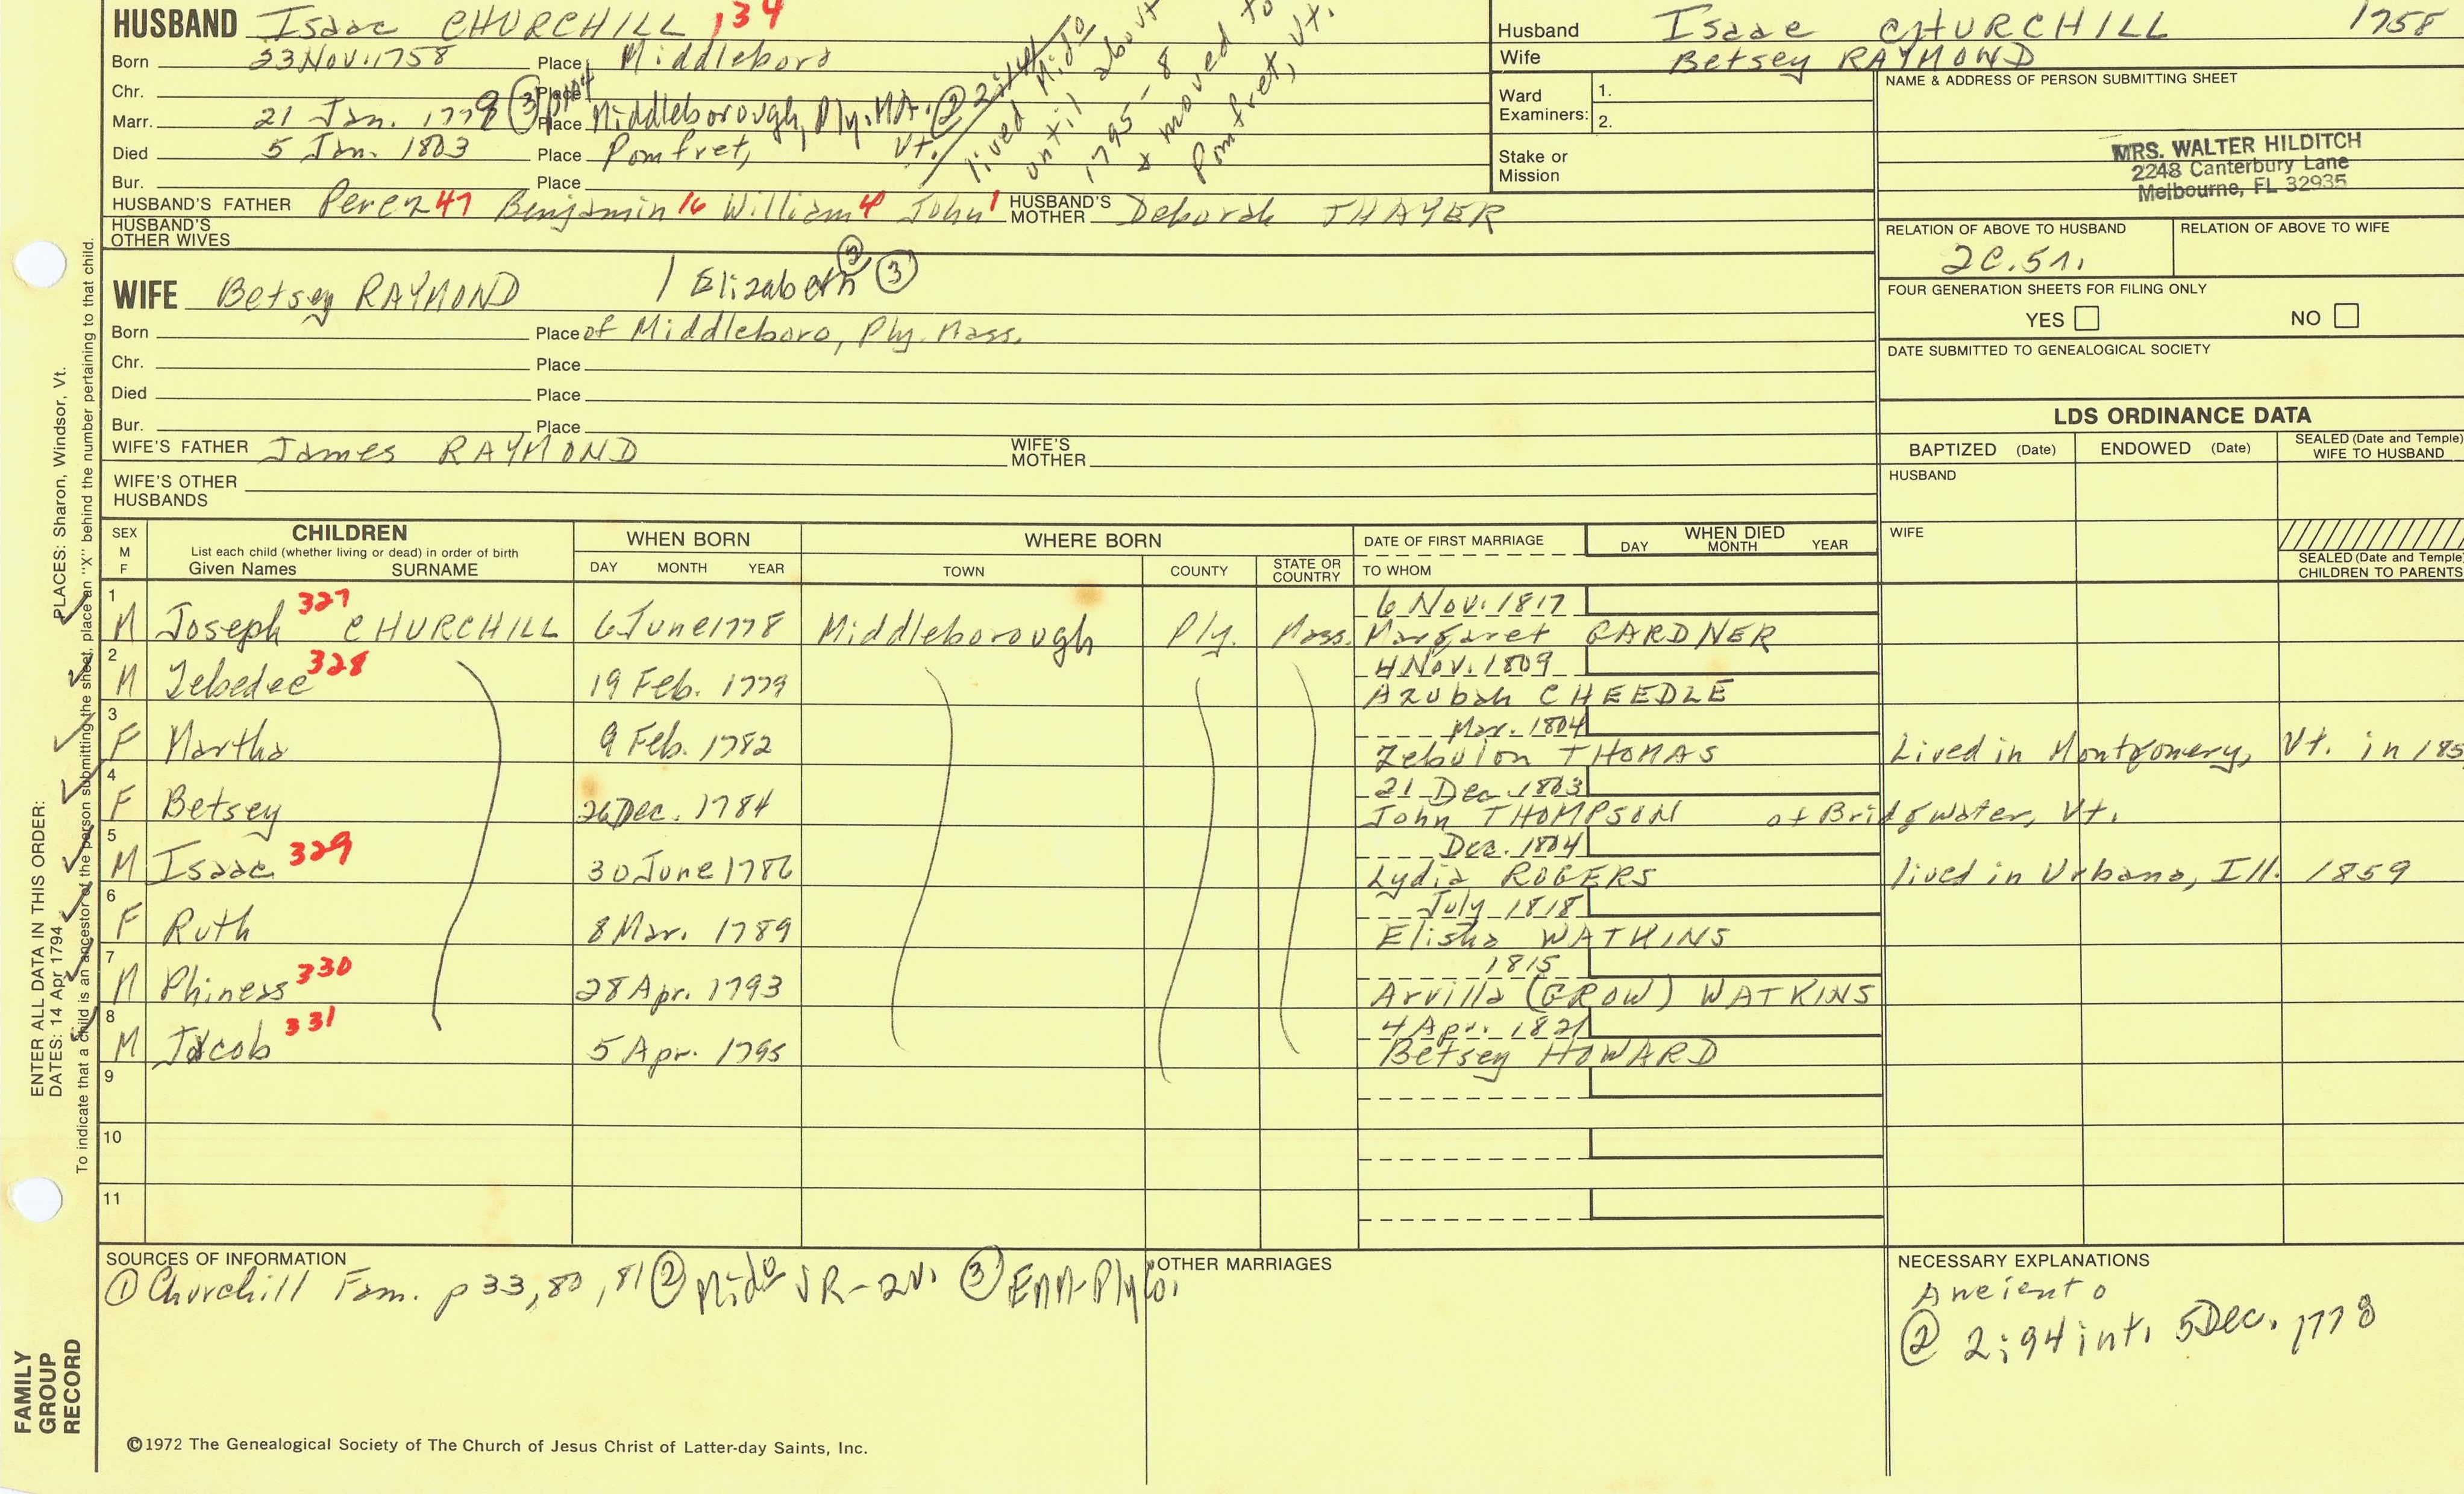 HUSBAND Isaac CHURCHILL 134
Born 23 Nov. 1758 Place Middleboro
Chr. Place
Marr. 21 Jan. 1779 ③ p104 Place Middleborough, Ply. MA. ②
Died 5 Jan. 1803 Place Pomfret, Vt.
Bur. Place
lived Mido
until about
1795-8
& moved to
Pomfret, Vt.
HUSBAND'S FATHER Perez 47 Benjamin 16 William 4 John 1 HUSBAND'S MOTHER Deborah THAYER
HUSBAND'S OTHER WIVES
WIFE Betsey RAYMOND / Elizabeth ② ③
Born Place of Middleboro, Ply. Mass.
Chr. Place
Died Place
Bur. Place
WIFE'S FATHER James RAYMOND WIFE'S MOTHER
WIFE'S OTHER HUSBANDS
Husband Isaac CHURCHILL 1758
Wife Betsey RAYMOND
Ward Examiners: 1. 2.
Stake or Mission
NAME & ADDRESS OF PERSON SUBMITTING SHEET
MRS. WALTER HILDITCH
2248 Canterbury Lane
Melbourne, FL 32935
RELATION OF ABOVE TO HUSBAND RELATION OF ABOVE TO WIFE
2C.5r.
FOUR GENERATION SHEETS FOR FILING ONLY
YES NO
DATE SUBMITTED TO GENEALOGICAL SOCIETY
LDS ORDINANCE DATA
BAPTIZED (Date) ENDOWED (Date) SEALED (Date and Temple) WIFE TO HUSBAND
HUSBAND
WIFE
SEALED (Date and Temple) CHILDREN TO PARENTS
SEX M F CHILDREN List each child (whether living or dead) in order of birth Given Names SURNAME
WHEN BORN DAY MONTH YEAR
WHERE BORN TOWN COUNTY STATE OR COUNTRY
DATE OF FIRST MARRIAGE TO WHOM
WHEN DIED DAY MONTH YEAR
1 M Joseph 327 CHURCHILL 6 June 1778 Middleborough Ply. Mass. 6 Nov. 1817
Margaret GARDNER
2 M Zebedee 328 19 Feb. 1779 4 Nov. 1809
Azubah CHEEDLE
3 F Martha 9 Feb. 1782 Mar. 1804
Zebulon THOMAS Lived in Montgomery, Vt. in 185
4 F Betsey 26 Dec. 1784 21 Dec. 1803
John THOMPSON of Bridgwater, Vt.
5 M Isaac 329 30 June 1786 Dec. 1804
Lydia ROGERS lived in Urbana, Ill. 1859
6 F Ruth 8 Mar. 1789 July 1818
Elisha WATKINS
7 M Phineas 330 28 Apr. 1793 1815
Arvilla (GROW) WATKINS
8 M Jacob 331 5 Apr. 1795 4 Apr. 1821
Betsey HOWARD
9
10
11
SOURCES OF INFORMATION
① Churchill Fam. p 33, 80, 81 ② Mido VR-2v. ③ EMM-Ply Co.
OTHER MARRIAGES
NECESSARY EXPLANATIONS
② 2:94 int. 5 Dec. 1778
©1972 The Genealogical Society of The Church of Jesus Christ of Latter-day Saints, Inc.
FAMILY GROUP RECORD
ENTER ALL DATA IN THIS ORDER:
DATES: 14 Apr 1794 PLACES: Sharon, Windsor, Vt.
To indicate that a child is an ancestor of the person submitting the sheet, place an "X" behind the number pertaining to that child.